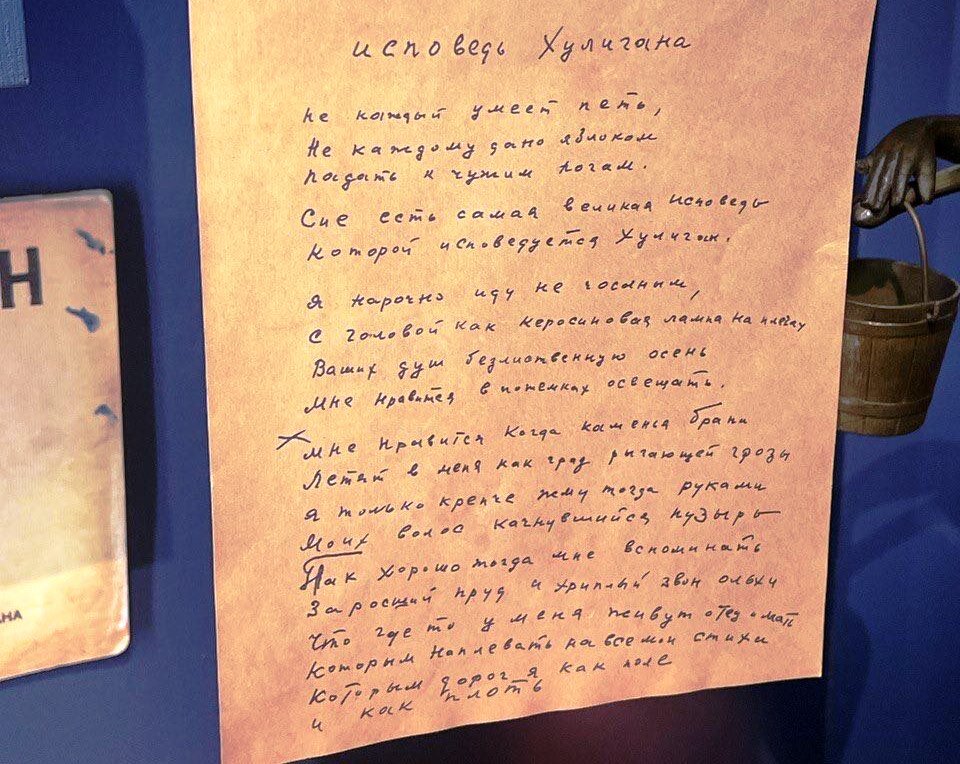 исповедь Хулигана
не каждый умеет петь,
Не каждому дано яблоком
Падать к чужим ногам.
Сие есть самая великая исповедь
Которой исповедуется Хулиган.
Я нарочно иду не чосаным,
С головой как керосиновая лампа на плечах
Ваших душ безлиственную осень
Мне нравится в потемках освещать.
Мне нравится когда каменья брани
Летят в меня как град рыгающей грозы
Я только крепче жму тогда руками
Моих волос качнувшийся пузырь
Так хорошо тогда мне вспоминать
Заросший пруд и хриплый звон ольхи
Что где то у меня живут отец и мать
Которым наплевать на все мои стихи
Которым дорог я как поле
и как плоть
Н
НА